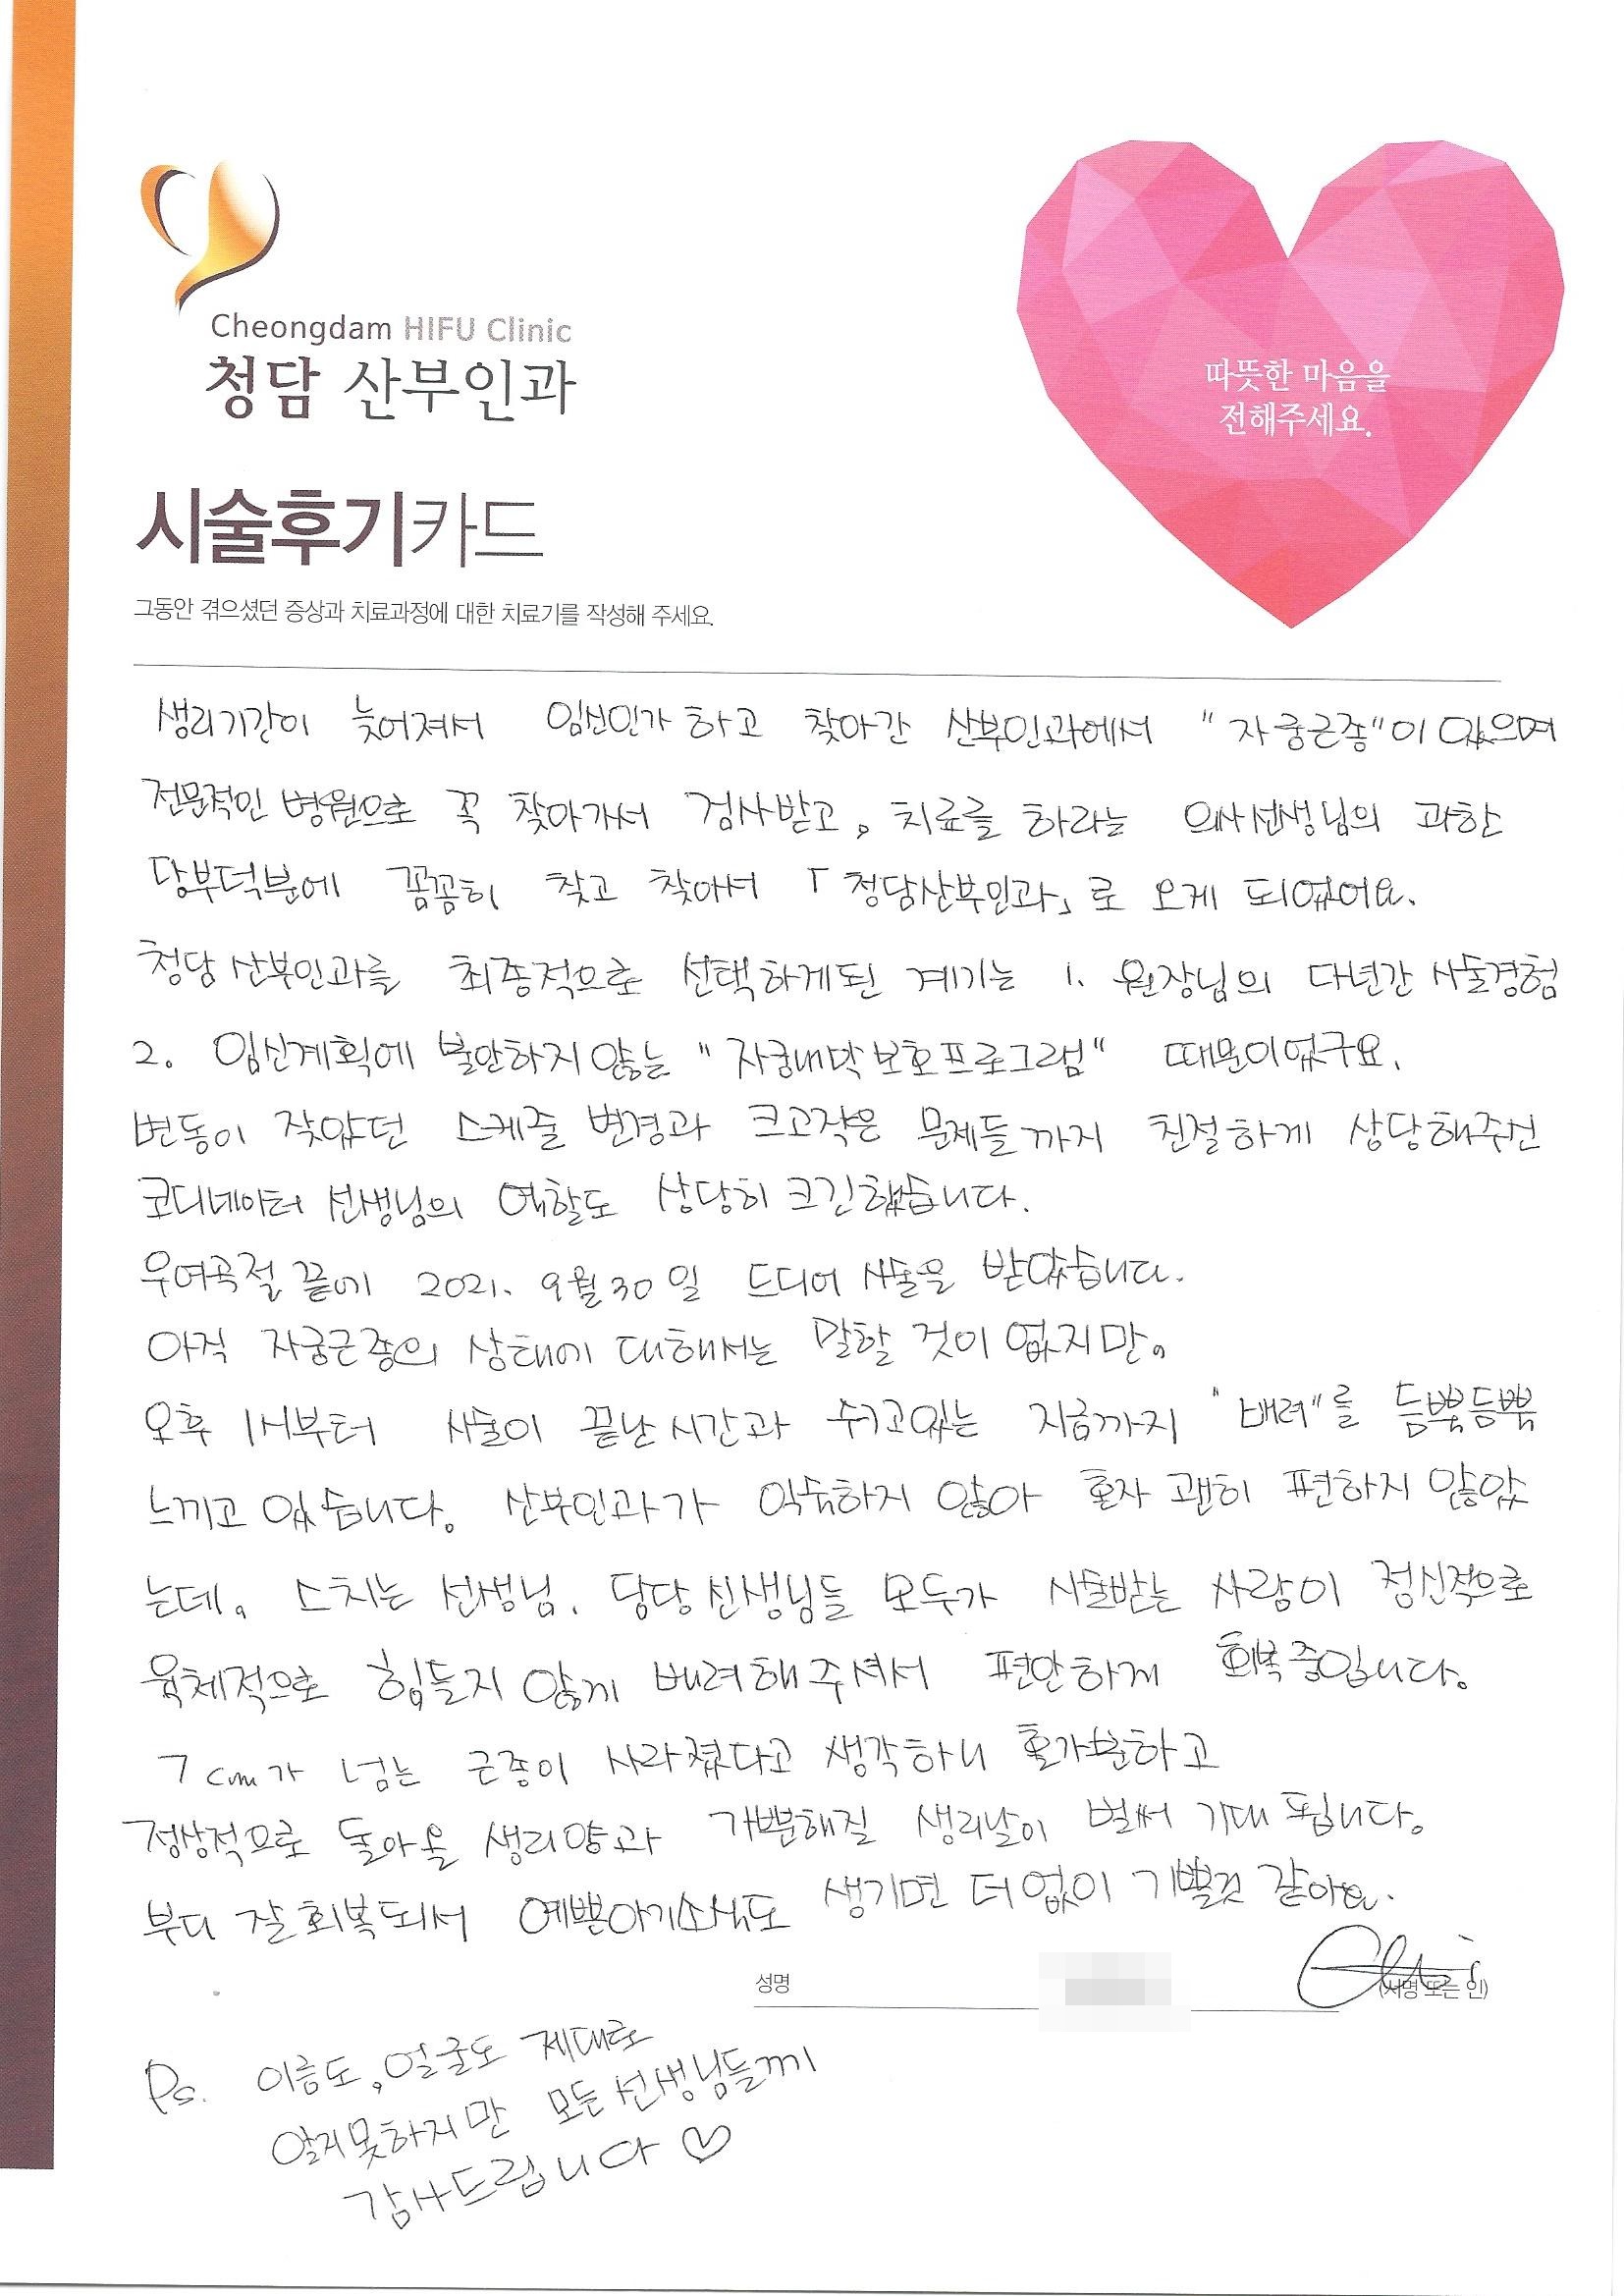 Cheongdam HIFU Clinic
청담 산부인과
따뜻한 마음을
전해주세요.
시술후기카드
그동안 겪으셨던 증상과 치료과정에 대한 치료기를 작성해 주세요.
생리기간이 늦어져서 임신인가 하고 찾아간 산부인과에서 "자궁근종"이 있으며
전문적인 병원으로 꼭 찾아가서 검사받고, 치료를 하라는 의사선생님의 과한
당부덕분에 꼼꼼히 찾고 찾아서 「청담산부인과」로 오게 되었어요.
청담산부인과를 최종적으로 선택하게된 계기는 1. 원장님의 다년간 시술경험
2. 임신계획에 불안하지않는 "자궁내막보호프로그램" 때문이었구요.
변동이 잦았던 스케줄 변경과 크고작은 문제들까지 친절하게 상담해주신
코디네이터 선생님의 역할도 상당히 크긴했습니다.
우여곡절 끝에 2021. 9월30일 드디어 시술을 받았습니다.
아직 자궁근종의 상태에 대해서는 말할 것이 없지만.
오후 1시부터 시술이 끝난시간과 쉬고있는 지금까지 "배려"를 듬뿍듬뿍
느끼고 있습니다. 산부인과가 익숙하지 않아 혼자 괜히 편하지 않았
는데. 스치는 선생님. 담당선생님들 모두가 시술받는 사람이 정신적으로
육체적으로 힘들지 않게 배려해주셔서 편안하게 회복중입니다.
7cm가 넘는 근종이 사라졌다고 생각하니 홀가분하고
정상적으로 돌아올 생리양과 가뿐해질 생리날이 벌써 기대됩니다.
부디 잘회복되서 예쁜아기소식도 생기면 더없이 기쁠것 같아요.
성명 (서명 또는 인)
Ps. 이름도, 얼굴도 제대로
알지못하지만 모든선생님들께
감사드립니다 ♡